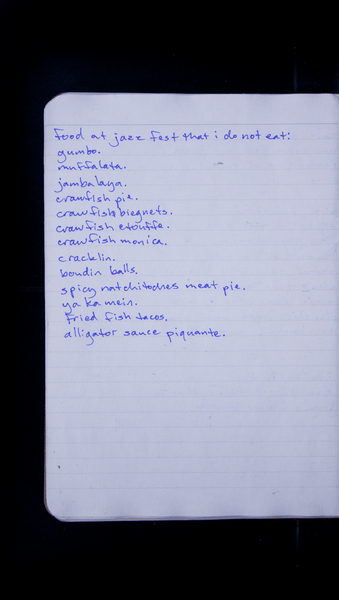 Food at jazz fest that i do not eat:
gumbo.
muffalata.
jambalaya.
crawfish pie.
crawfish biegnets.
crawfish etouffe.
crawfish monica.
cracklin.
boudin balls.
spicy natchitoches meat pie.
ya ka mein.
fried fish tacos.
alligator sauce piquante.